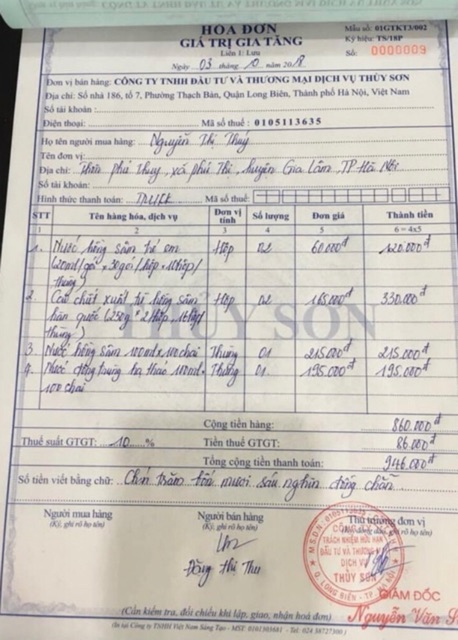 HÓA ĐƠN
GIÁ TRỊ GIA TĂNG
Liên 1: Lưu
Ngày 03 tháng 10 năm 2018
Mẫu số: 01GTKT3/002
Ký hiệu: TS/18P
Số: 0000009
Đơn vị bán hàng: CÔNG TY TNHH ĐẦU TƯ VÀ THƯƠNG MẠI DỊCH VỤ THỦY SƠN
Địa chỉ: Số nhà 186, tổ 7, Phường Thạch Bàn, Quận Long Biên, Thành phố Hà Nội, Việt Nam
Số tài khoản:
Điện thoại: Mã số thuế: 0105113635
Họ tên người mua hàng: Nguyễn Thị Thúy
Tên đơn vị:
Địa chỉ: Thôn Phú Thụy, xã Phú Thị, huyện Gia Lâm, TP Hà Nội
Số tài khoản:
Hình thức thanh toán: TM/CK Mã số thuế:
STT Tên hàng hóa, dịch vụ Đơn vị tính Số lượng Đơn giá Thành tiền
1 2 3 4 5 6 = 4x5
1. Nước hồng sâm trẻ em Hộp 02 60.000đ 120.000đ
(20ml/gói × 30gói/hộp × hộp/
thùng)
2. Cao chiết xuất từ hồng sâm Hộp 02 165.000đ 330.000đ
hàn quốc (250g × 2/hộp, hộp/
thùng)
3. Nước hồng sâm 100ml × 100chai Thùng 01 215.000đ 215.000đ
4. Nước đông trùng hạ thảo 100ml × Thùng 01 195.000đ 195.000đ
100chai
THỦY SƠN
Cộng tiền hàng: 860.000đ
Thuế suất GTGT: 10 % Tiền thuế GTGT: 86.000đ
Tổng cộng tiền thanh toán: 946.000đ
Số tiền viết bằng chữ: Chín trăm bốn mươi sáu nghìn đồng chẵn
Người mua hàng Người bán hàng Thủ trưởng đơn vị
(Ký, ghi rõ họ tên) (Ký, ghi rõ họ tên) đóng dấu, rõ họ tên)
M.S.D.N: 0105113635
CÔNG TY
TRÁCH NHIỆM HỮU HẠN
ĐẦU TƯ VÀ THƯƠNG MẠI
DỊCH VỤ
THỦY SƠN
Q. LONG BIÊN - TP. HÀ NỘI
Đặng Thị Thu
GIÁM ĐỐC
Nguyễn Văn
(Cần kiểm tra, đối chiếu khi lập, giao, nhận hóa đơn)
(In tại Công ty TNHH Việt Nam Sáng Tạo - MST: 0101303681 - ĐT: 024 36727300)